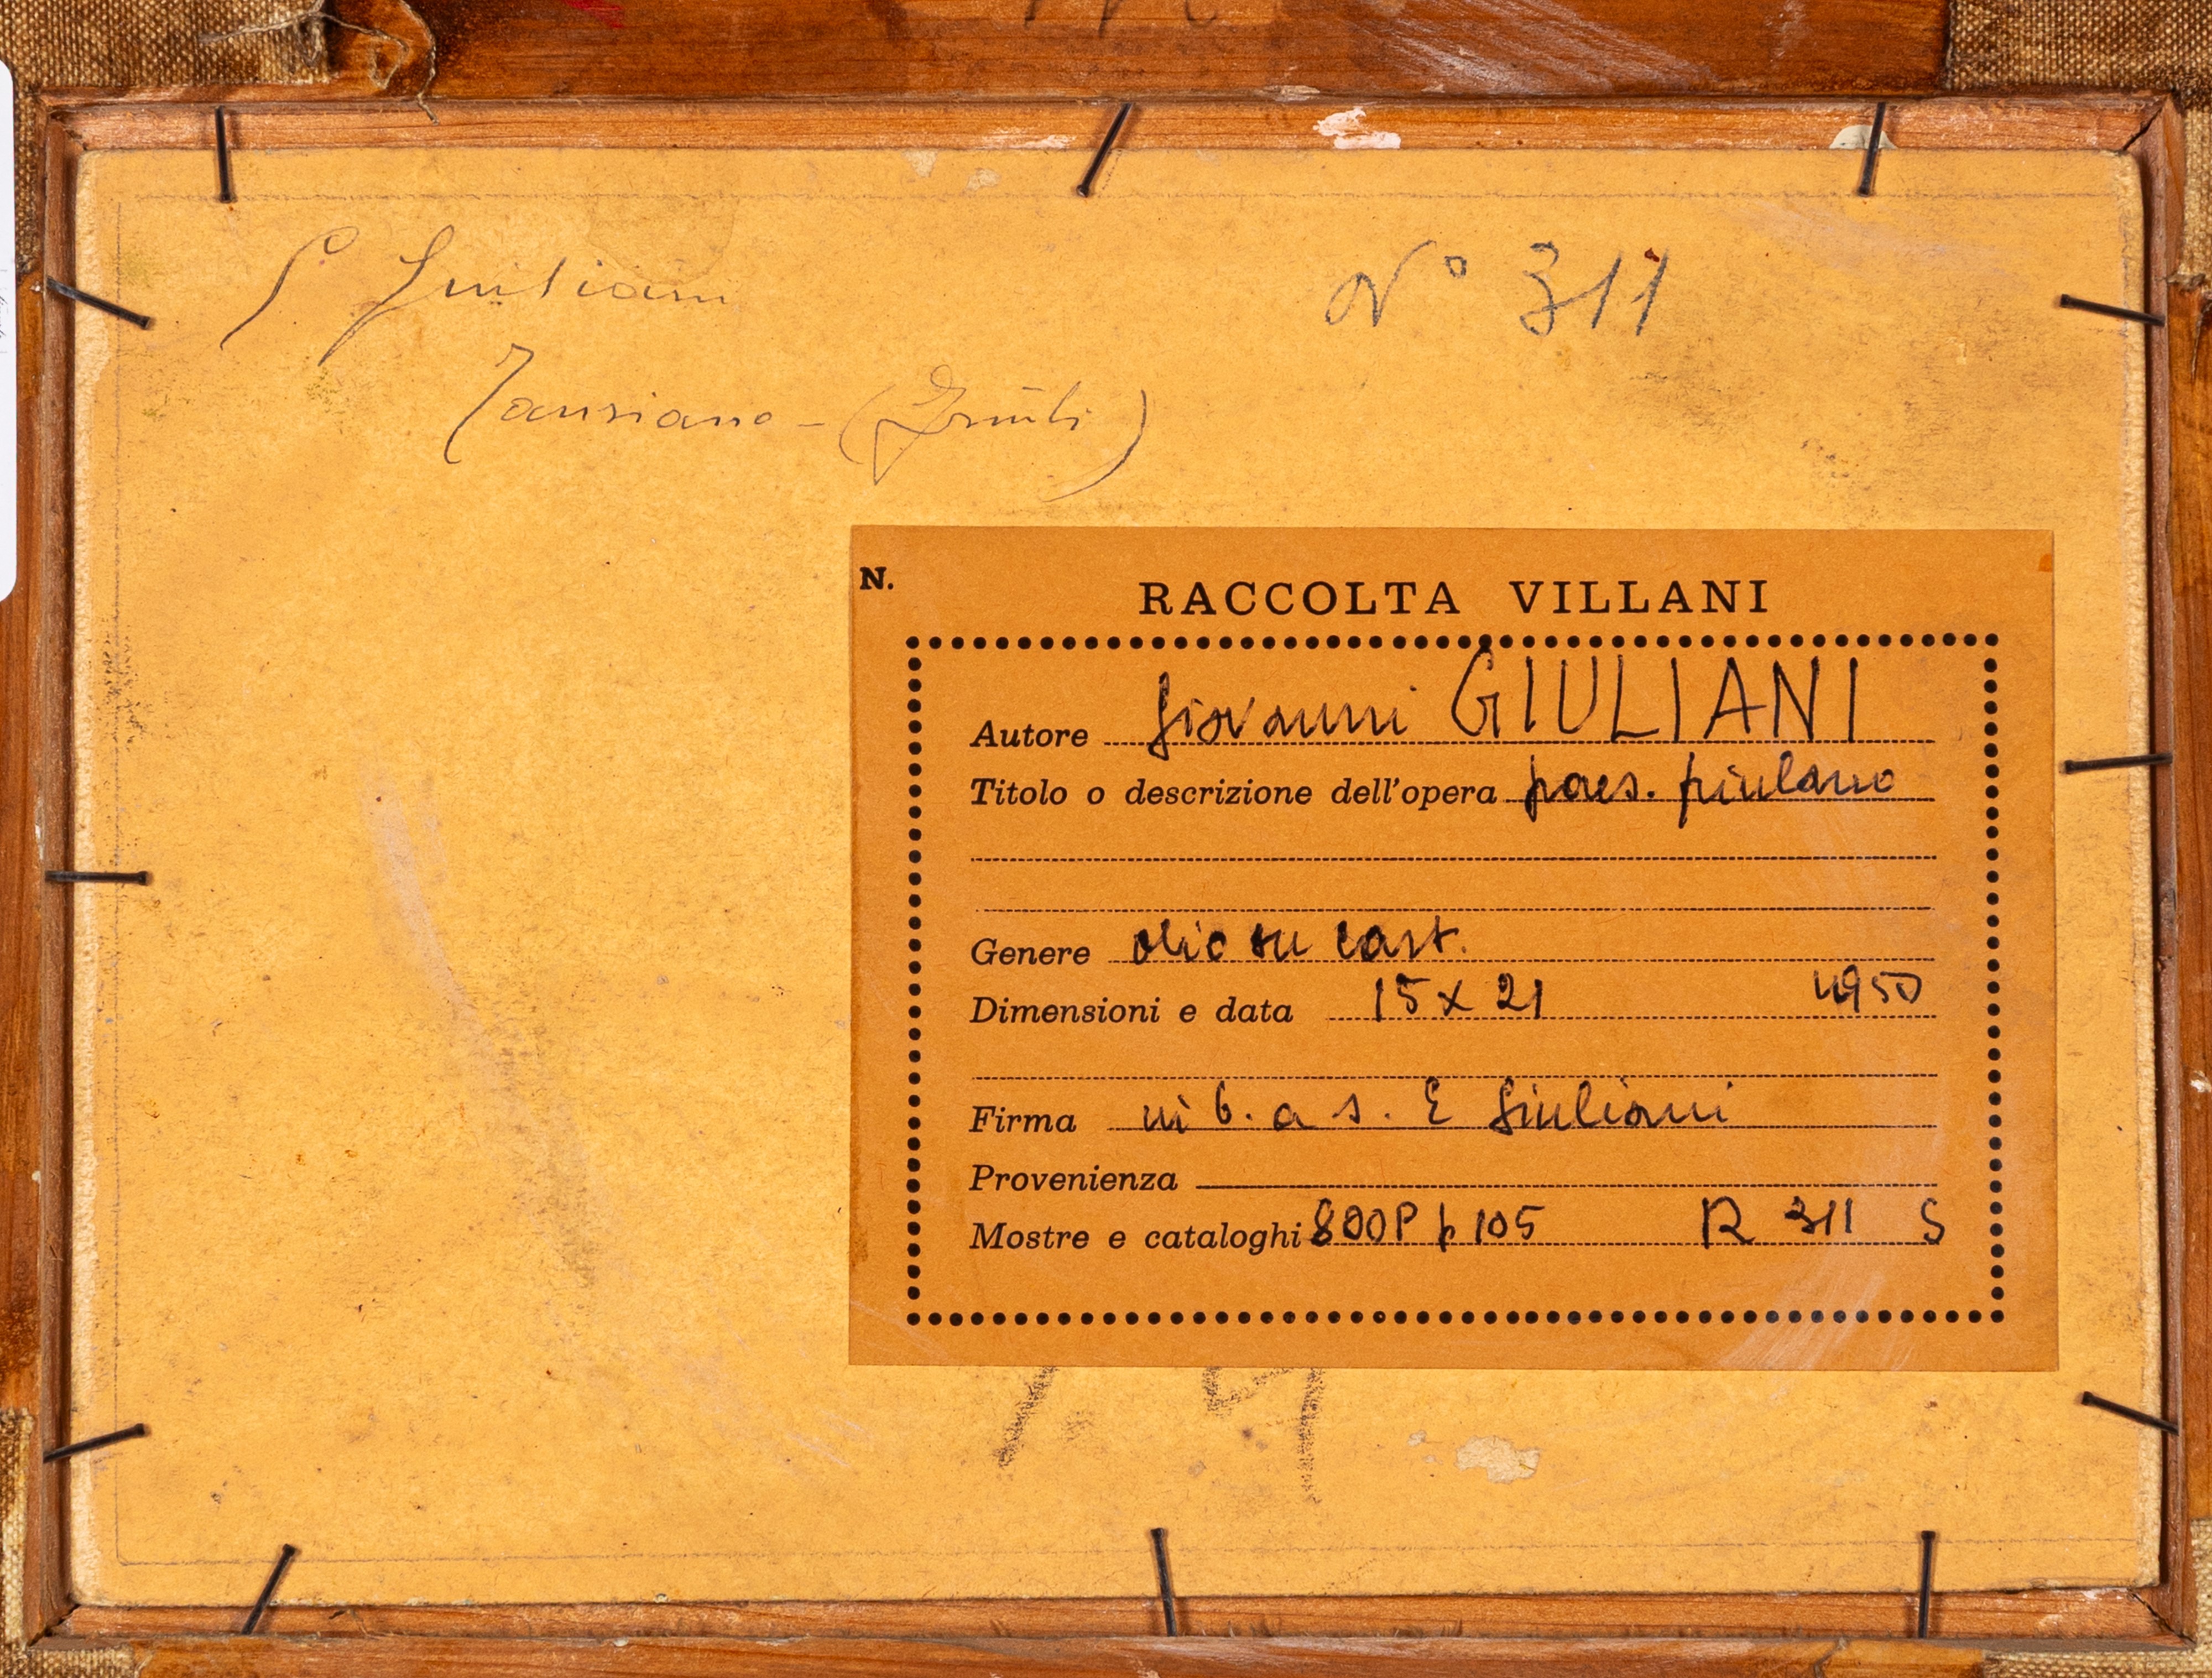 Giuliani
N° 311
Tauriano - (Friuli)
N.
RACCOLTA VILLANI
Autore Giovanni GIULIANI
Titolo o descrizione dell'opera paes. friulano
Genere olio su cart.
Dimensioni e data 15 x 21 1950
Firma in b. a s. E Giuliani
Provenienza
Mostre e cataloghi 800P p 105 R 311 S